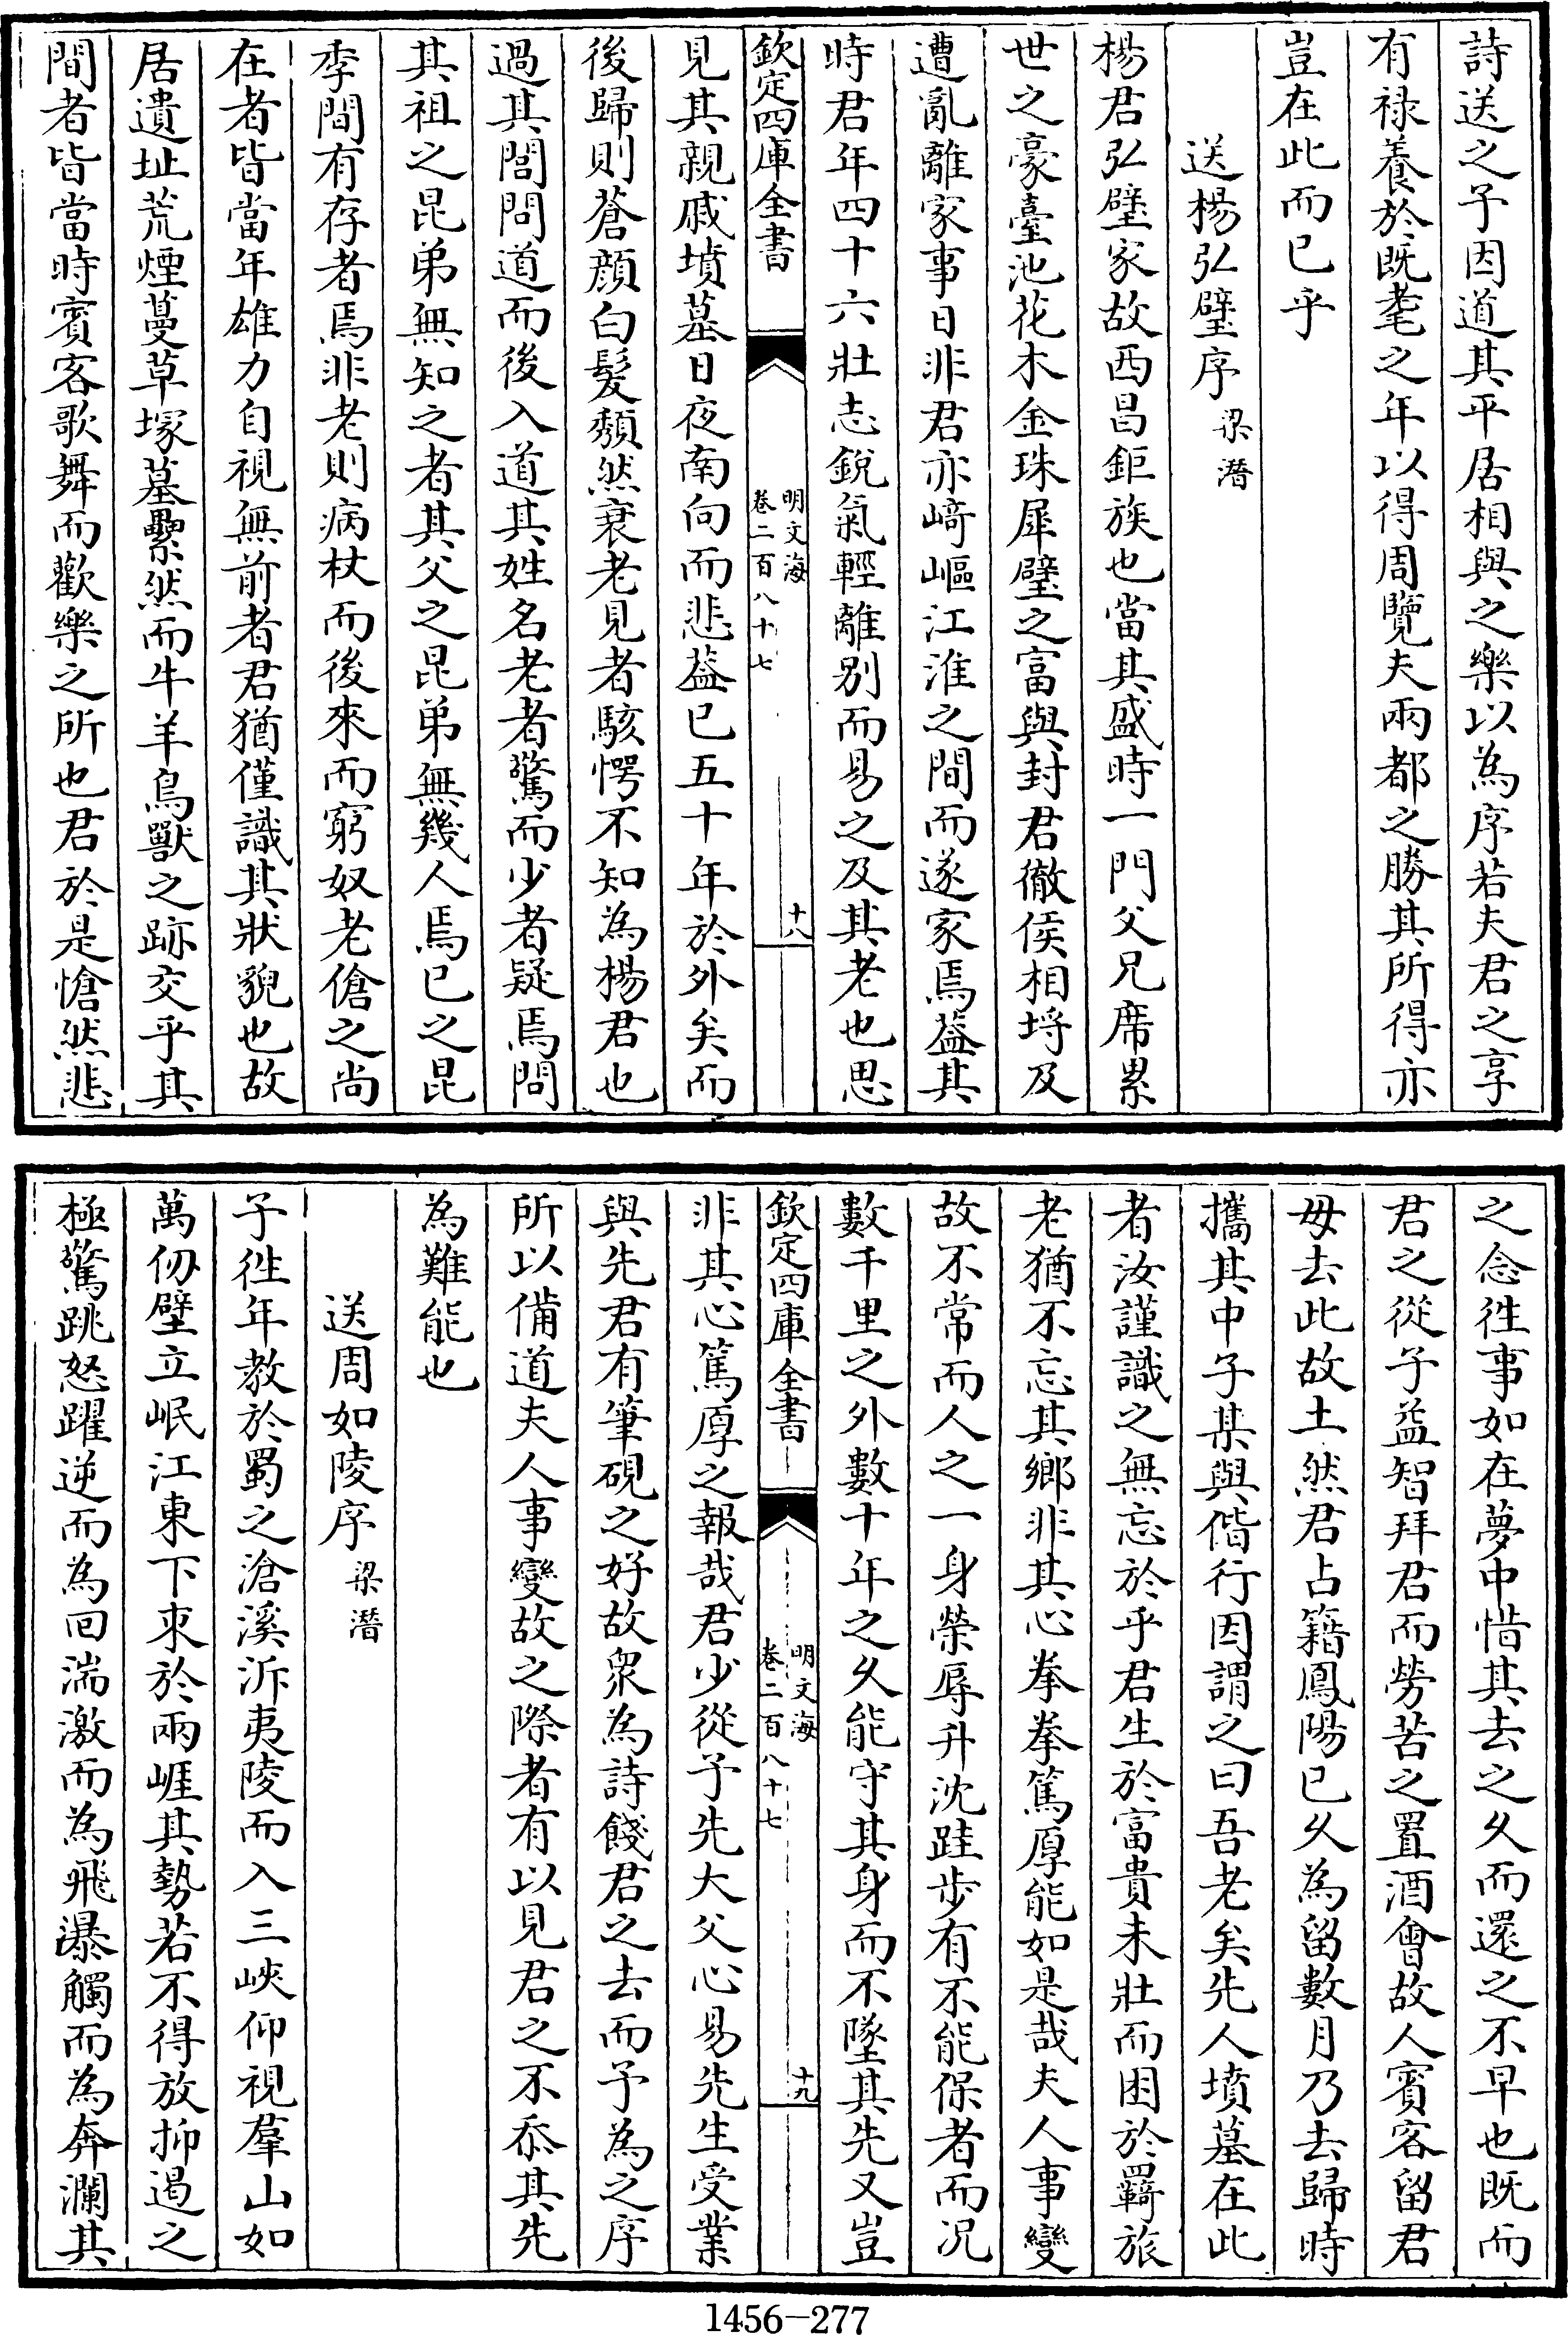 詩送之予因道其平居相與之樂以為序若夫君之享
有禄養於既耄之年以得周覽夫兩都之勝其所得亦
豈在此而已乎
送楊弘璧序 梁潛
楊君弘璧家故西昌鉅族也當其盛時一門父兄席累
世之豪臺池花木金珠犀璧之富與封君徹侯相埒及
遭亂離家事日非君亦﨑嶇江淮之間而遂家焉葢其
時君年四十六壯志銳氣輕離别而易之及其老也思
欽定四庫全書
明文海
卷二百八十七
十八
見其親戚墳墓日夜南向而悲葢已五十年於外矣而
後歸則蒼顔白髮頽然衰老見者駭愕不知為楊君也
過其閭問道而後入道其姓名老者驚而少者疑焉問
其祖之昆弟無知之者其父之昆弟無幾人焉已之昆
季間有存者焉非老則病杖而後來而窮奴老傖之尚
在者皆當年雄力自視無前者君猶僅識其狀貌也故
居遺址荒煙蔓草塚墓纍然而牛羊鳥獸之跡交乎其
間者皆當時賓客歌舞而歡樂之所也君於是愴然悲
之念往事如在夢中惜其去之乆而還之不早也既而
君之從子益智拜君而勞苦之置酒會故人賓客留君
毋去此故土然君占籍鳳陽已乆為留數月乃去歸時
攜其中子某與偕行因謂之曰吾老矣先人墳墓在此
者汝謹識之無忘於乎君生於富貴未壯而困於羇旅
老猶不忘其鄉非其心拳拳篤厚能如是哉夫人事變
故不常而人之一身榮辱升沈跬步有不能保者而况
數千里之外數十年之乆能守其身而不墜其先又豈
欽定四庫全書
明文海
卷二百八十七
十九
非其心篤厚之報哉君少從予先大父心易先生受業
與先君有筆硯之好故衆為詩餞君之去而予為之序
所以備道夫人事變故之際者有以見君之不忝其先
為難能也
送周如陵序 梁潛
予徃年教於蜀之滄溪泝夷陵而入三峽仰視羣山如
萬仭壁立岷江東下束於兩崖其勢若不得放抑遏之
極驚跳怒躍逆而為回湍激而為飛瀑觸而為奔瀾其
1456-277